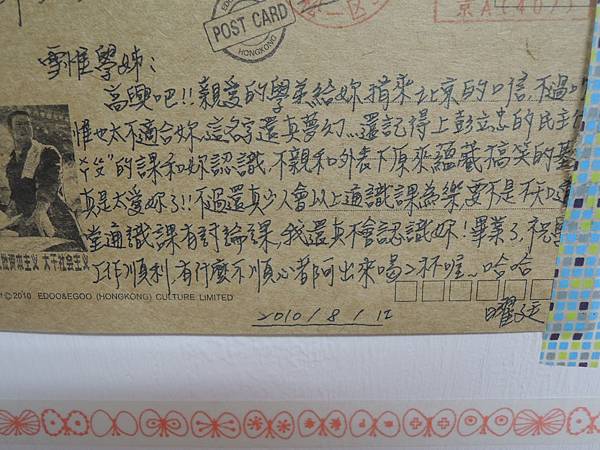 EDOO&EGOO
POST CARD
HONGKONG
京A(40)
雪惟學姊：
高興吧!!親愛的學弟給妳捎來北京的口信,不過
惟也太不適合妳,這名字還真夢幻...還記得上彭立忠的民主
的課和妳認識,不親和外表下原來蘊藏搞笑的
真是太愛妳了!!不過還真少人會以上通識課為樂,要不是
堂通識課有討論課,我還真不會認識妳!畢業了,祝
工作順利,有什麼不順心都可出來喝一杯喔~哈哈
資本主义 大干社会主义
©2010 EDOO&EGOO (HONGKONG) CULTURE LIMITED
2010/8/12